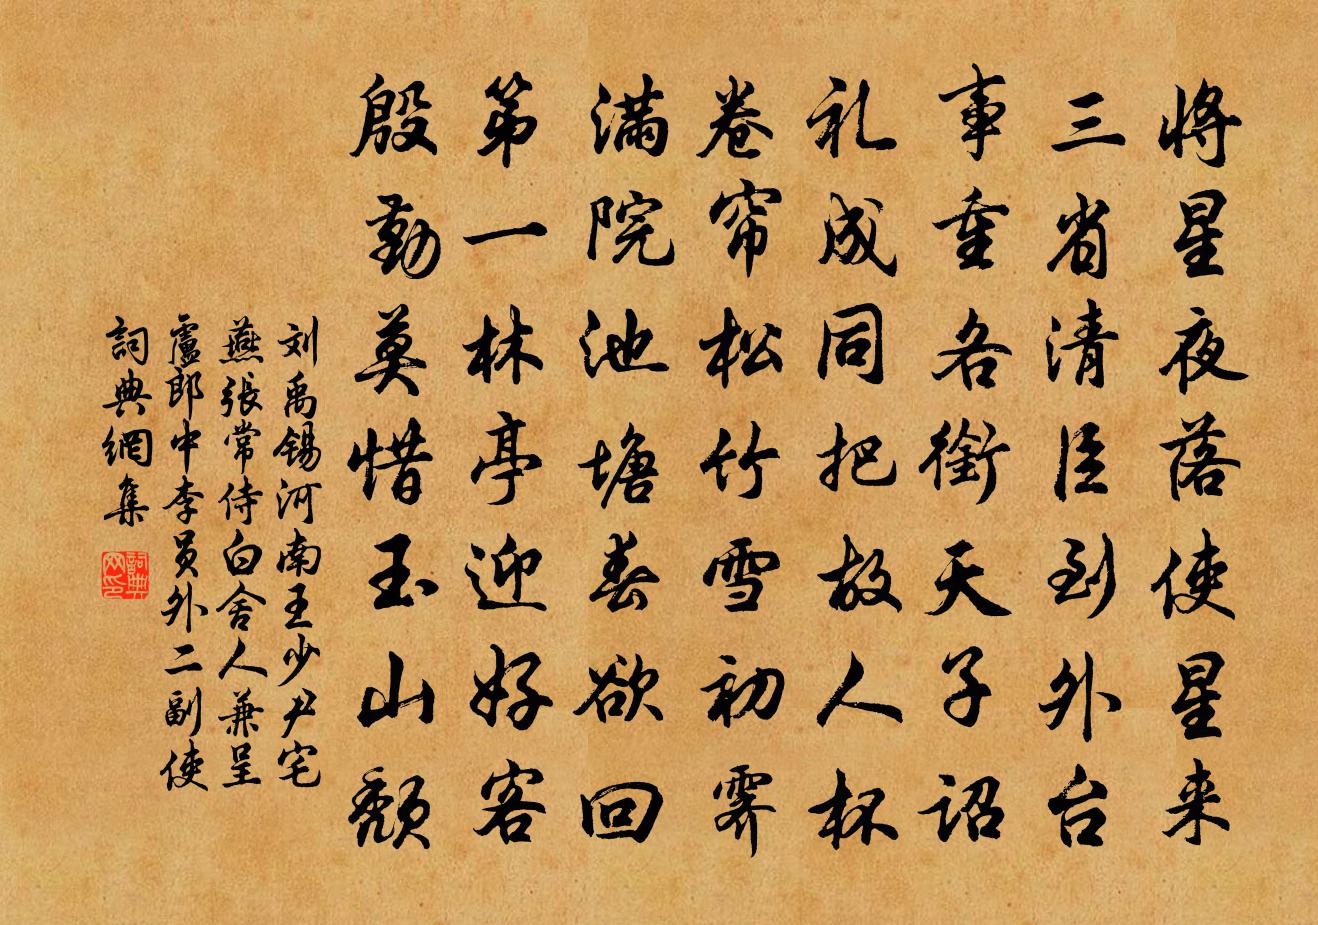 将星夜落使星来
三省清臣到外台
事重各衔天子诏
礼成同把故人杯
卷帘松竹雪初霁
满院池塘春欲回
第一林亭迎好客
殷勤莫惜玉山颓
刘禹锡河南王少尹宅
燕張常侍白舍人兼呈
盧郎中李员外二副使
詞典網集
詞典
网印